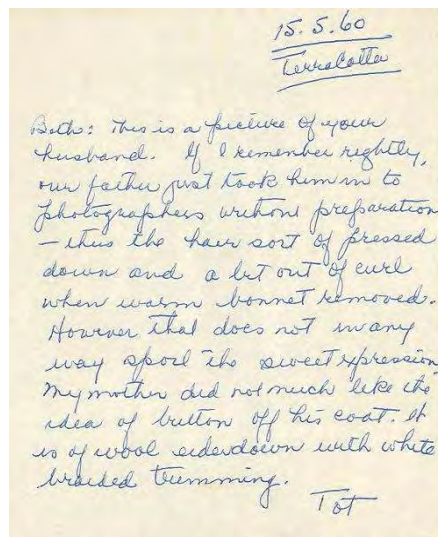 15.5.60
Terra Cotta
Beth: This is a picture of your
husband. If I remember rightly,
our father just took him in to
photographers without preparation
– thus the hair sort of pressed
down and a bit out of curl
when warm bonnet removed.
However that does not in any
way spoil the sweet expression
My mother did not much like the
idea of button off his coat. It
is of wool eiderdown with white
braided trimming.
Tot